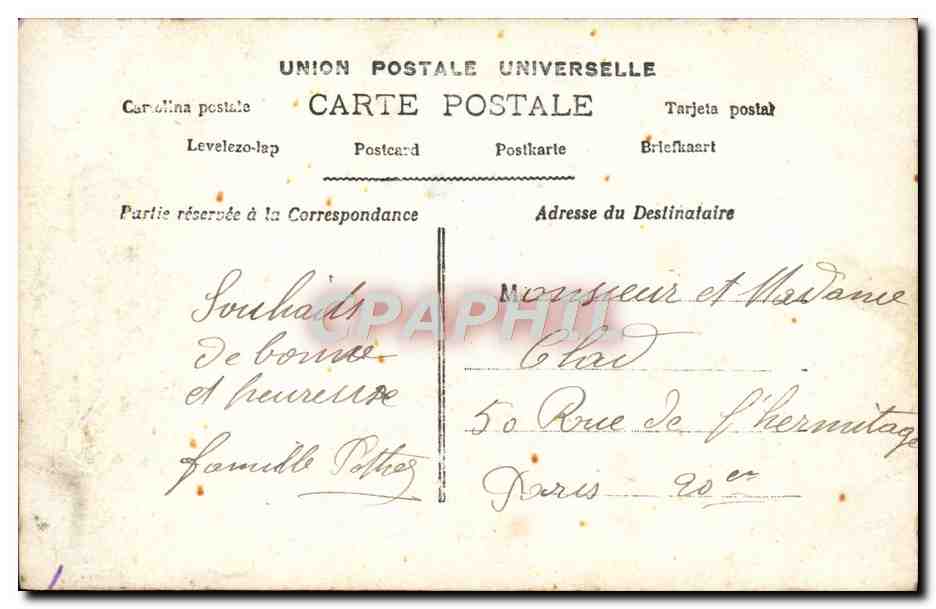 UNION POSTALE UNIVERSELLE
CARTE POSTALE
Cartolina postale
Tarjeta postal
Levelezo-lap
Postcard
Postkarte
Briefkaart
Partie réservée à la Correspondance
Souhaits
de bonne
et heureuse
famille
Adresse du Destinataire
Monsieur et Madame
Clad
50 Rue de l'hermitage
Paris 20er
CPAPHIL